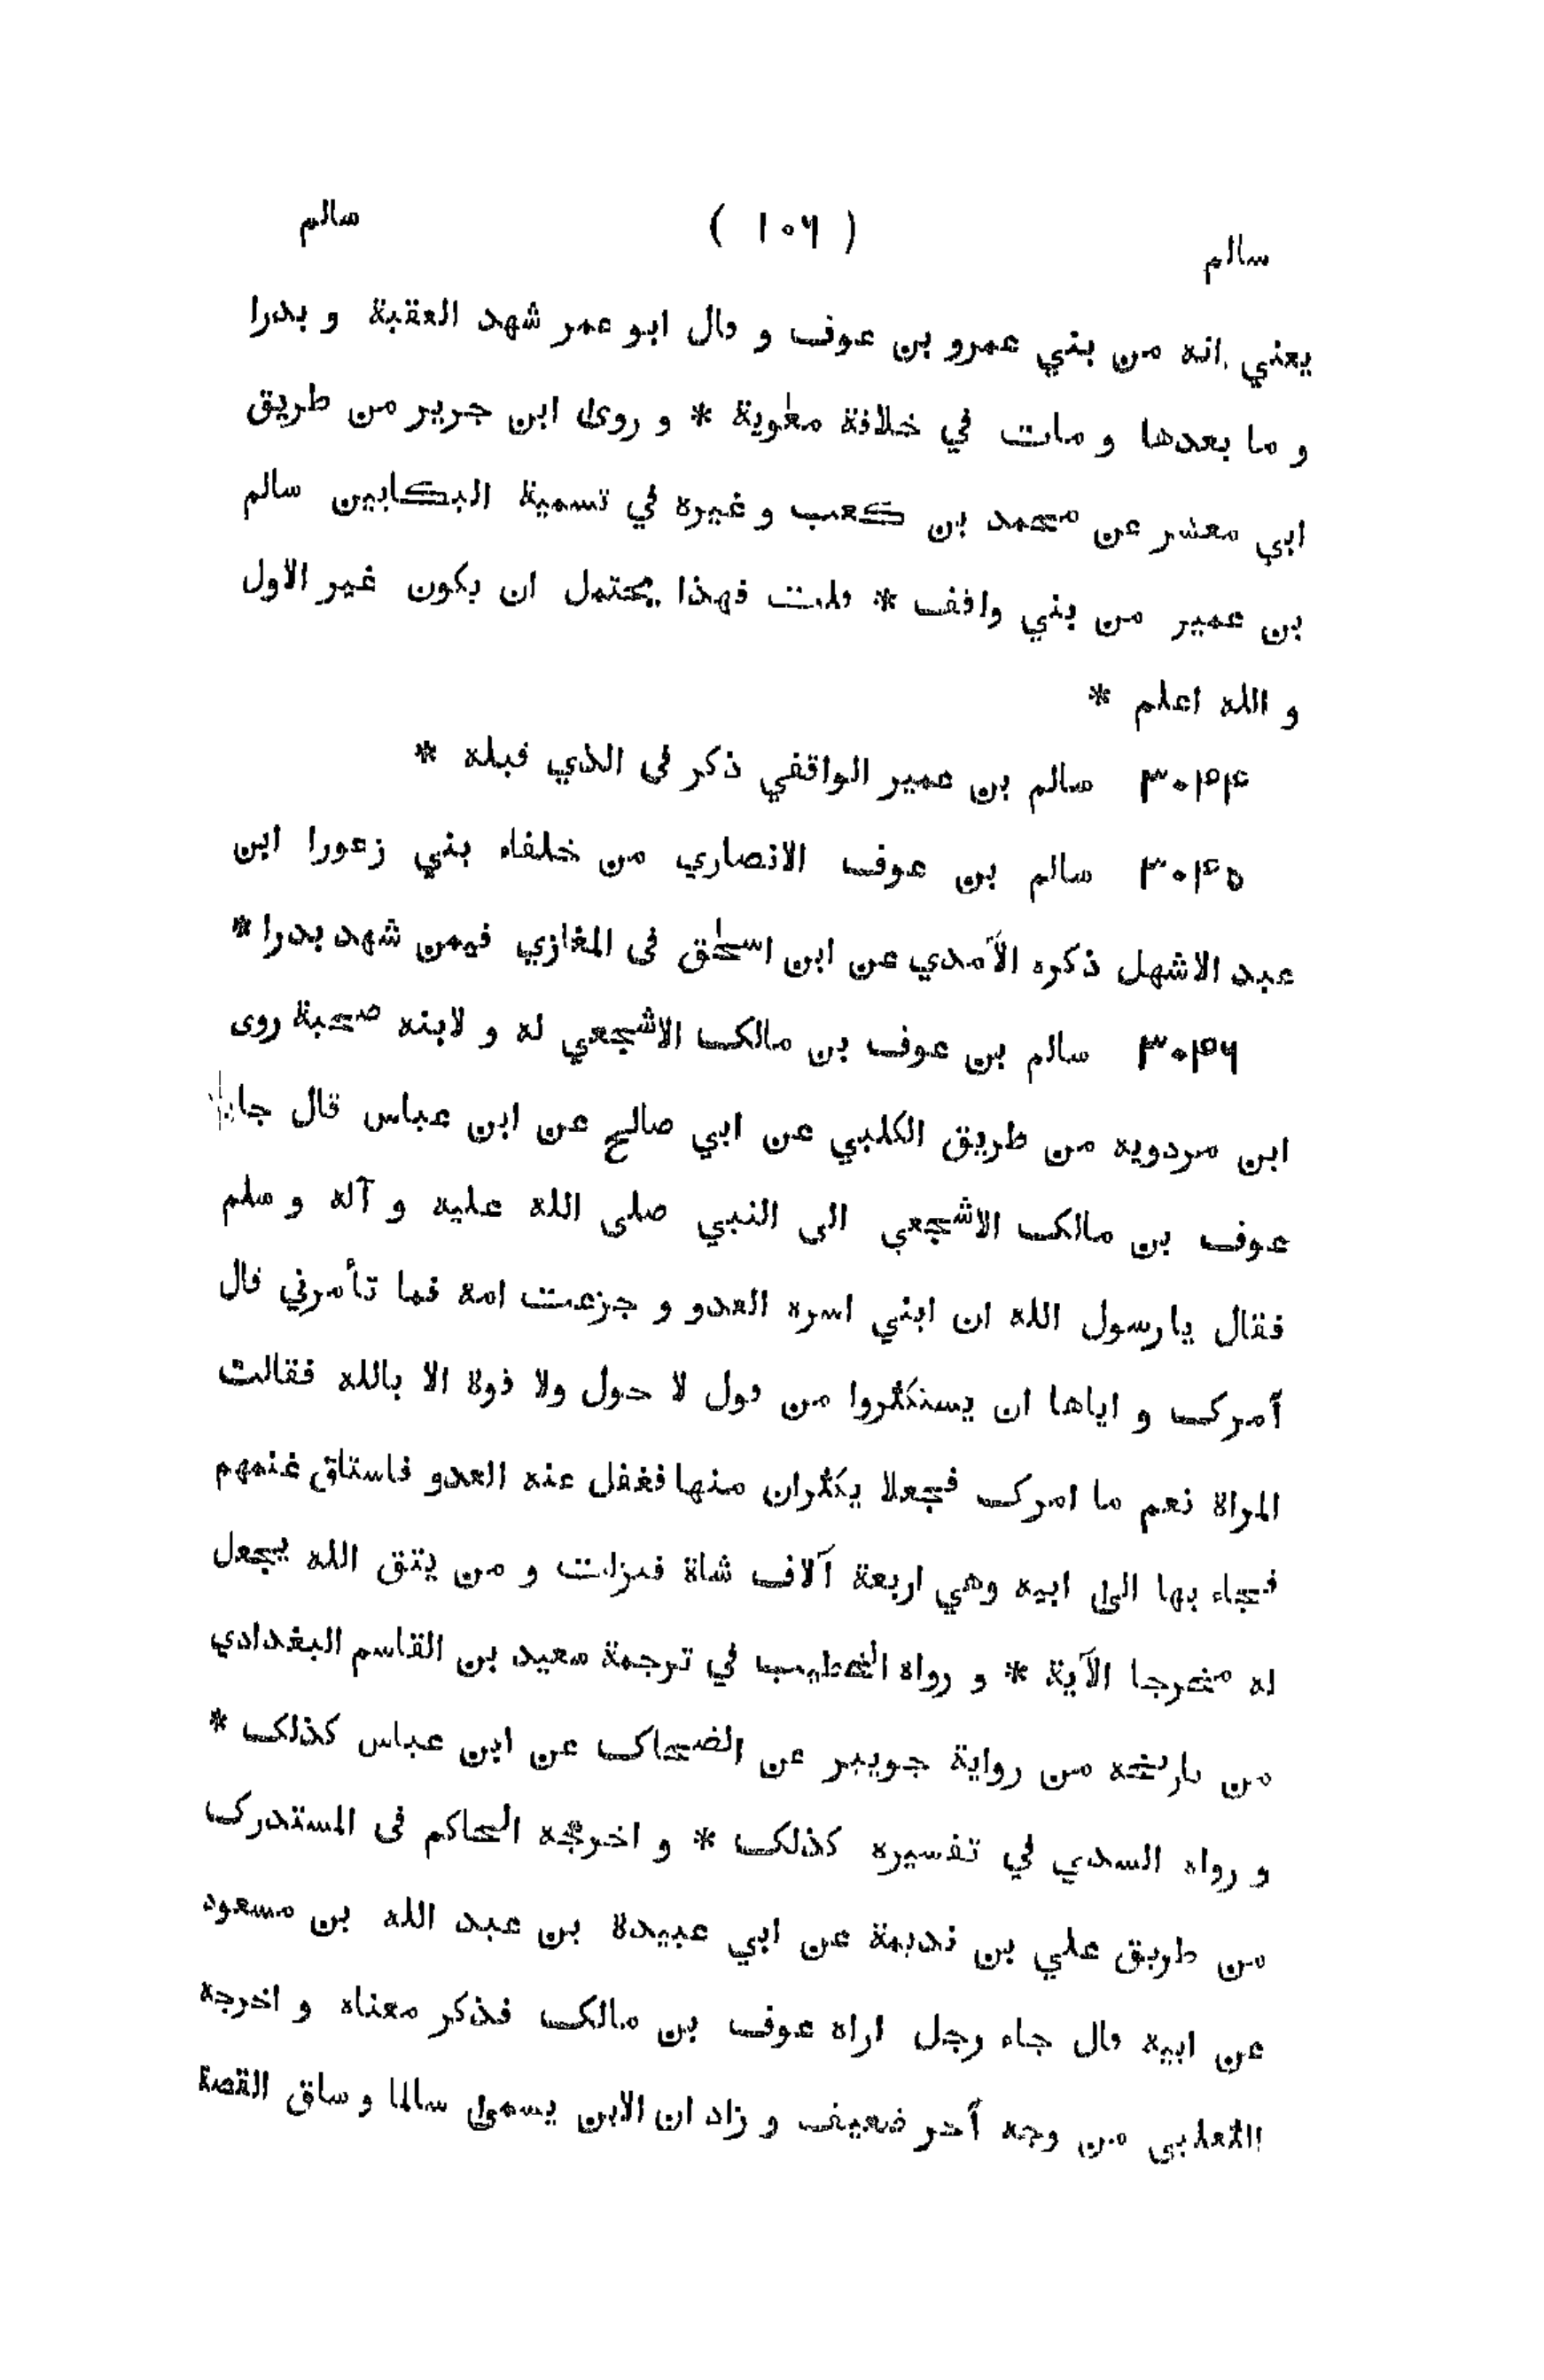 سالم ( ١٠٦ ) سالم
يعني انه من بني عمرو بن عوف و قال ابو عمر شهد العقبة و بدرا
و ما بعدها و مات في خلافة معٰوية * و روىٰ ابن جرير من طريق
ابي معشر عن محمد بن كعب و غيره في تسمية البكايين سالم
بن عمير من بني واقف * قلت فهذا يحتمل ان يكون غير الاول
و الله اعلم *
٣٠٤٤ سالم بن عمير الواقفي ذكر فى الذي قبله *
٣٠٤٥ سالم بن عوف الانصاري من خلفاء بني زعورا ابن
عبد الاشهل ذكره الآمدي عن ابن اسحٰق فى المغازي فيمن شهد بدرا *
٣٠٤٦ سالم بن عوف بن مالك الاشجعي له و لابنه صحبة روى
ابن مردويه من طريق الكلبي عن ابي صالح عن ابن عباس قال جاء
عوف بن مالك الاشجعي الى النبي صلى الله عليه و آله و سلم
فقال يا رسول الله ان ابني اسره العدو و جزعت امه فما تأمرني قال
آمرك و اياها ان يستكثروا من قول لا حول ولا قوة الا بالله فقالت
المراة نعم ما امرك فجعلا يكثران منها فغفل عنه العدو فاستاق غنمهم
فجاء بها الىٰ ابيه وهي اربعة آلاف شاة فنزلت و من يتق الله يجعل
له مخرجا الآية * و رواه الخطيب في ترجمة سعيد بن القاسم البغدادي
من تاريخه من رواية جويبر عن الضحاك عن ابن عباس كذلك *
و رواه السدي في تفسيره كذلك * و اخرجه الحاكم فى المستدرك
من طريق علي بن نديمة عن ابي عبيدة بن عبد الله بن مسعود
عن ابيه قال جاء رجل اراه عوف بن مالك فذكر معناه و اخرجه
الثعلبي من وجه آخر ضعيف و زاد ان الابن يسمىٰ سالما و ساق القصة